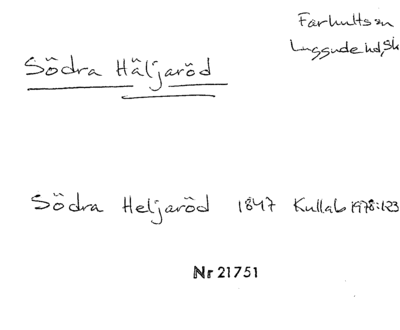 Farhults sn
Luggude hd, Sk
Södra Häljaröd
Södra Heljaröd 1847 Kullab 1978:123
Nr 21751